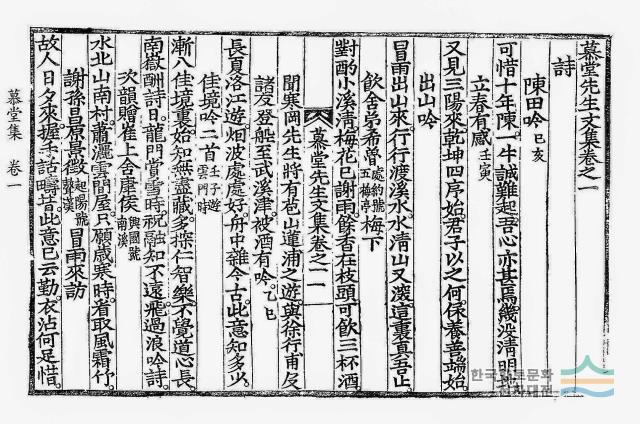 慕堂先生文集卷之一
詩
陳田吟 己亥
可惜十年陳一牛誠難起吾心亦甚焉幾沒淸明地
立春有感 壬寅
又見三陽來乾坤四序始君子以之何保養善端始
出山吟
冒雨出山來行行渡溪水水淸山又深這裏眞吾止
飮舍弟希魯 處約號五梅亭 梅下
對酌小溪淸梅花已謝雨餘香在枝頭可飮三杯酒
慕堂先生文集卷之一 一
聞寒岡先生將有苞山蓮浦之遊與徐行甫及
諸友登船至武溪津被酒有吟 乙巳
長夏洛江遊烟波處處好舟中雜今古此意知多少
佳境吟二首 壬子遊雲門時
漸入佳境裏始知無盡藏多採仁智樂不覺道心長
南嶽酬詩日龍門賞雪時祝融知不遠飛過浪吟詩
次韻贈崔上舍康侯 興國號南溪
水北山南村蕭灑雲間屋只願歲寒時看取風霜竹
謝孫昌原景徵 起陽號鰲漢 冒雨來訪
故人日夕來握手話疇昔此意已云勤衣沾何足惜
慕堂集 卷一
한국향토문화
전자대전